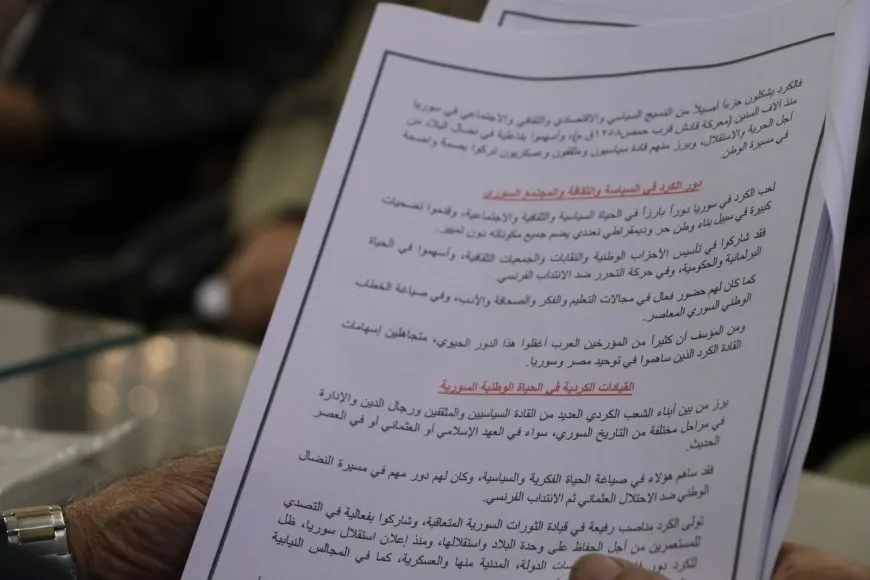 فالكرد يشكلون جزءاً أصيلاً من النسيج السياسي والاقتصادي والثقافي والاجتماعي في سوريا
منذ آلاف السنين (معركة قادش قرب حمص ١٢٥٨ق.م)، وأسهموا بفاعلية في نضال البلاد من
أجل الحرية والاستقلال، ويبرز منهم قادة سياسيون ومثقفون وعسكريون تركوا بصمة واضحة
في مسيرة الوطن.
دور الكرد في السياسة والثقافة والمجتمع السوري
لعب الكرد في سوريا دوراً بارزاً في الحياة السياسية والثقافية والاجتماعية، وقدموا تضحيات
كبيرة في سبيل بناء وطن حر وديمقراطي تعددي يضم جميع مكوناته دون تمييز.
فقد شاركوا في تأسيس الأحزاب الوطنية والنقابات والجمعيات الثقافية، وأسهموا في الحياة
البرلمانية والحكومية، وفي حركة التحرر ضد الانتداب الفرنسي.
كما كان لهم حضور فعال في مجالات التعليم والفكر والصحافة والأدب، وفي صياغة الخطاب
الوطني السوري المعاصر.
ومن المؤسف أن كثيراً من المؤرخين العرب أغفلوا هذا الدور الحيوي، متجاهلين إسهامات
القادة الكرد الذين ساهموا في توحيد مصر وسوريا.
القيادات الكردية في الحياة الوطنية السورية
برز من بين أبناء الشعب الكردي العديد من القادة السياسيين والمثقفين ورجال الدين والإدارة
في مراحل مختلفة من التاريخ السوري، سواء في العهد الإسلامي أو العثماني أو في العصر
الحديث.
فقد ساهم هؤلاء في صياغة الحياة الفكرية والسياسية، وكان لهم دور مهم في مسيرة النضال
الوطني ضد الاحتلال العثماني ثم الانتداب الفرنسي.
تولّى الكرد مناصب رفيعة في قيادة الثورات السورية المتعاقبة، وشاركوا بفعالية في التصدي
للمستعمرين من أجل الحفاظ على وحدة البلاد واستقلالها، ومنذ إعلان استقلال سوريا، ظل
للكرد دور الدولة، المدنية منها والعسكرية، كما في المجالس النيابية